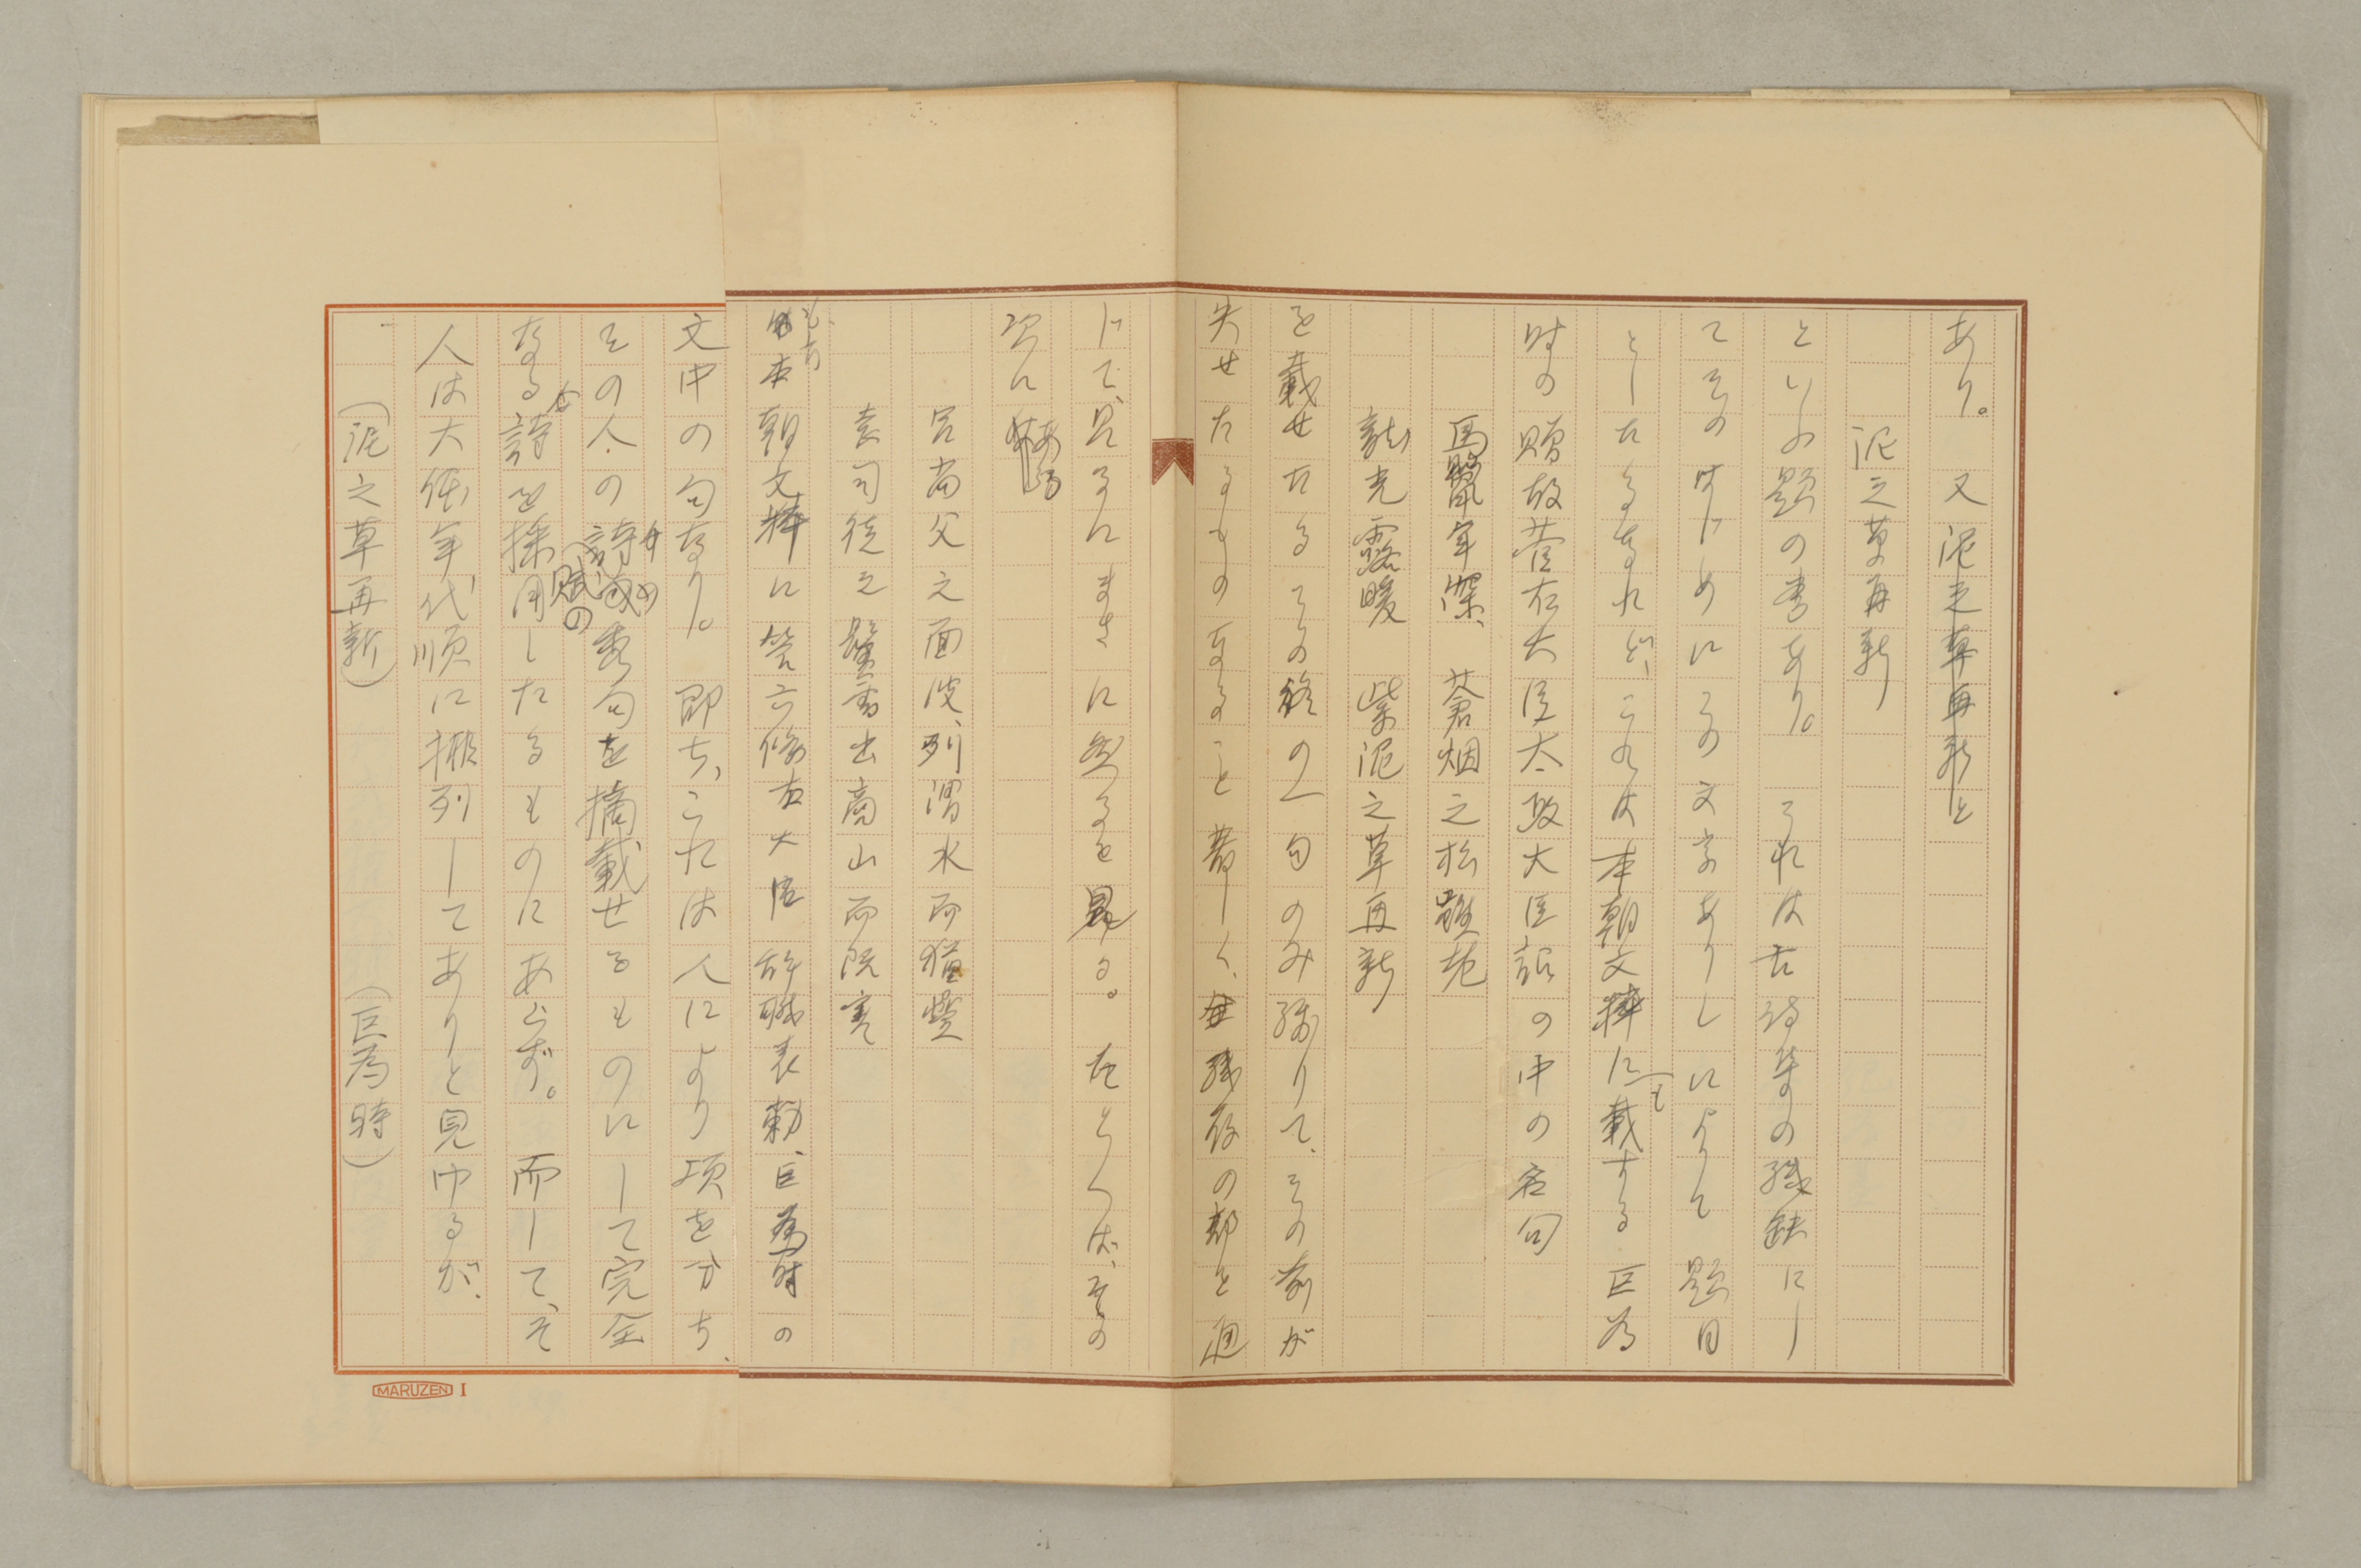 あり。又泥之草再新と
泥之草再新
といふ題の書あり。これは古詩等の残缺にし
てその時じめにこの文字ありしによりて題目
としたるなれど、これは本朝文粋にも載する巨為
時の贈故菅右大臣太政大臣詔の中の名句
馬鬣年深、蒼烟之松雖老
龍光露暖 紫泥之草再新
を載せたるその終の一句のみ残りて、その前が
失せたるものなること著しく、
じて、見るにまさに然るを見る。たとへば、その
次に ある
呂尚父之面波、列渭水而猶疊
袁司徒之鬢雪出商山而既寒
も亦本朝文粋に答六條右大臣辞職表勅、巨為時の
文中の句なり。即ち、こたは人により項をかち、
その人の詩賦の秀句を摘載せるものにして完全
なる詩を採用したるものにあらず。而して、そ
人は大低年代順に排列してありと見ゆるが、
(泥之草再新) (巨為時)
MARUZEN I